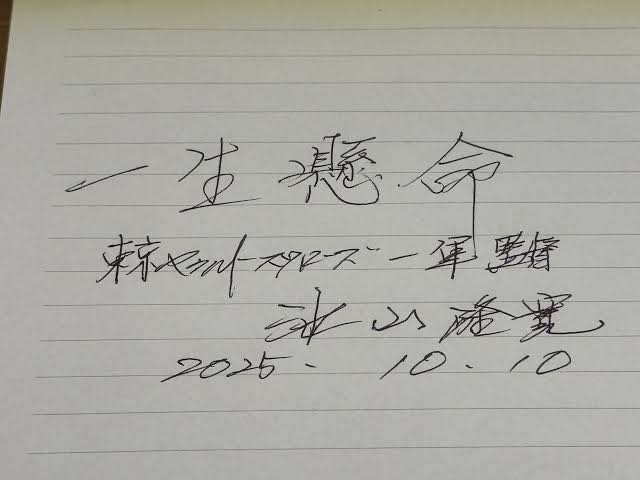 一生懸命
東京ヤクルトスワローズ一軍監督
池山隆寛
2025. 10. 10